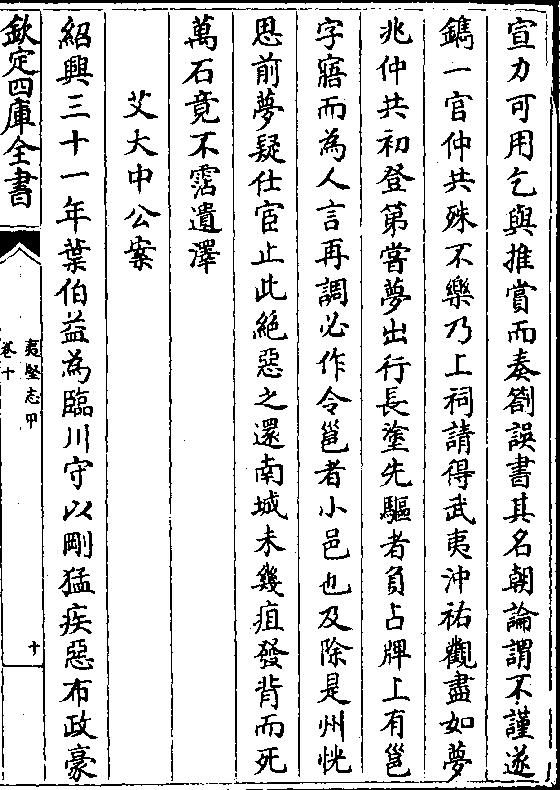 宣力可用乞與推賞而奏劄誤書其名朝論謂不謹遂
鐫一官仲共殊不樂乃上祠請得武夷沖祐觀盡如夢
兆仲共初登第嘗夢出行長塗先驅者負占牌上有邕
字寤而為人言再調必作令邕者小邑也及除是州恍
思前夢疑仕宦止此絕惡之還南城未幾疽發背而死
萬石竟不霑遺澤
艾大中公案
紹興三十一年葉伯益為臨川守以剛猛疾惡布政豪
欽定四庫全書
夷堅志甲
卷十
十